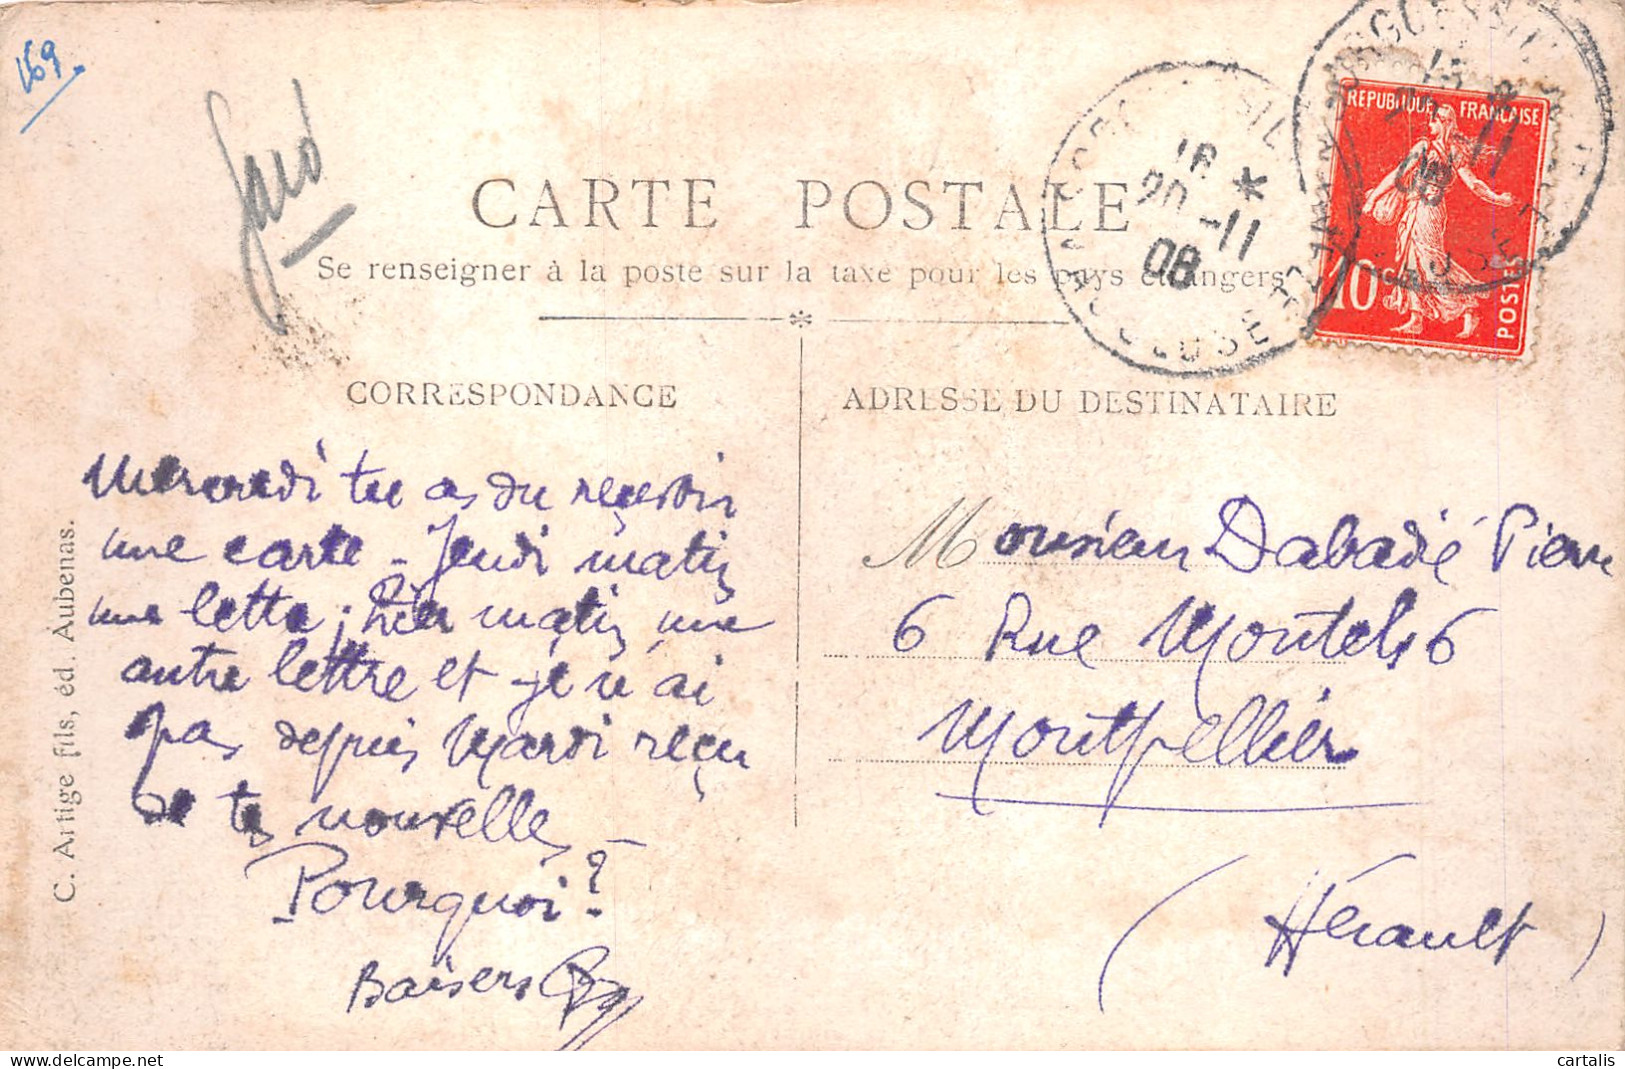 169.
Gard
CARTE POSTALE
Se renseigner à la poste sur la taxe pour les pays étrangers
REPUBLIQUE FRANÇAISE
10 c
POSTES
18 *
20 -11
08
VAUCLUSE
CORRESPONDANCE
ADRESSE DU DESTINATAIRE
Mercredi tu as du recevoir
une carte - Jeudi matin
une lettre ; hier matin une
autre lettre et je n'ai
pas depuis Mardi reçu
de tes nouvelles -
Pourquoi ?
Baisers
Monsieur Dabadié Pierre
6 Rue Montels 6
Montpellier
(Hérault)
C. Artige fils, éd. Aubenas.
cartalis